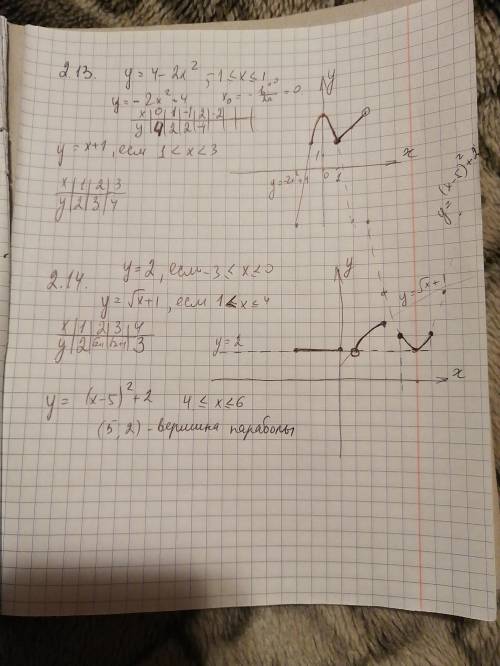 2.13. y = 4 - 2x², -1 ≤ x ≤ 1
y = -2x² + 4 x₀ = -b/2a = 0
x | 0 | 1 | -1 | 2 | -2
y | 4 | 2 | 2 | -4
y = x+1, если 1 < x < 3
x | 1 | 2 | 3
y | 2 | 3 | 4
y
x
1
0
1
y = -2x²+4
2.14. y = 2, если -3 ≤ x ≤ 0
y = √x + 1, если 1 < x ≤ 4
x | 1 | 2 | 3 | 4
y | 2 | √2+1 | √3+1 | 3
y = (x-5)² + 2 4 ≤ x ≤ 6
(5, 2) - вершина параболы
y
y = 2
y = √x + 1
y = (x-5)² + 2
x